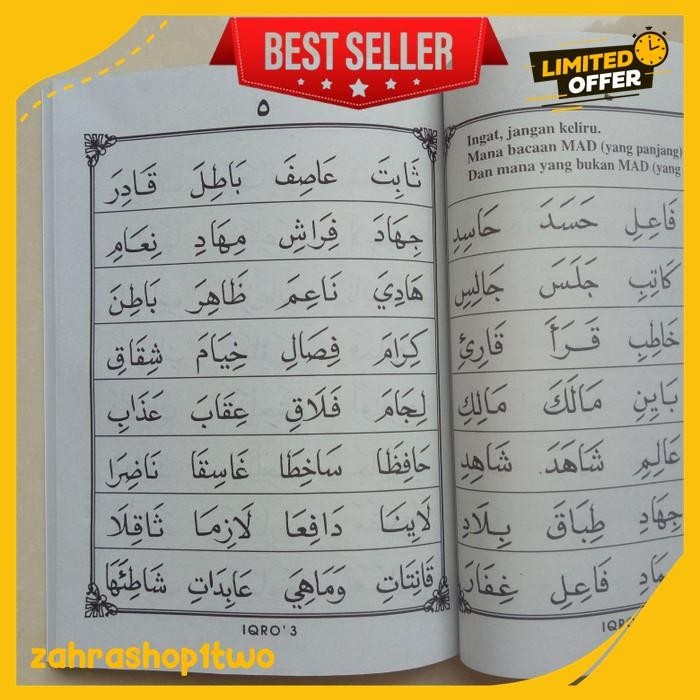 BEST SELLER
LIMITED
OFFER
٥
ثَابِتَ عَاصِفَ بَاطِلَ قَادِرَ
جِهَادَ فِرَاشِ مِهَادِ نِعَامِ
هَادِيَ نَاعِمَ ظَاهِرَ بَاطِنَ
كِرَامَ فِصَالِ خِيَامَ شِقَاقِ
لِجَامَ فَلَاقِ عِقَابَ عَذَابِ
حَافِظَا سَاخِطَا غَاسِقَا نَاضِرَا
لَايِنَا دَافِعَا لَازِمَا ثَاقِلَا
قَانِتَاتِ وَمَاهِيَ عَابِدَاتِ شَاطِئَهَا
IQRO' 3
Ingat, jangan keliru.
Mana bacaan MAD (yang panjang)
Dan mana yang bukan MAD (yang
فَاعِلِ حَسَدَ حَاسِدِ
كَاتِبِ جَلَسَ جَالِسِ
خَاطِبِ قَرَأَ قَارِئِ
بَايِنِ مَالَكَ مَالِكِ
عَالِمِ شَاهَدَ شَاهِدِ
جِهَادِ طِبَاقَ بِلَادِ
فَاعِلِ غِفَارَ
zahrashop1two